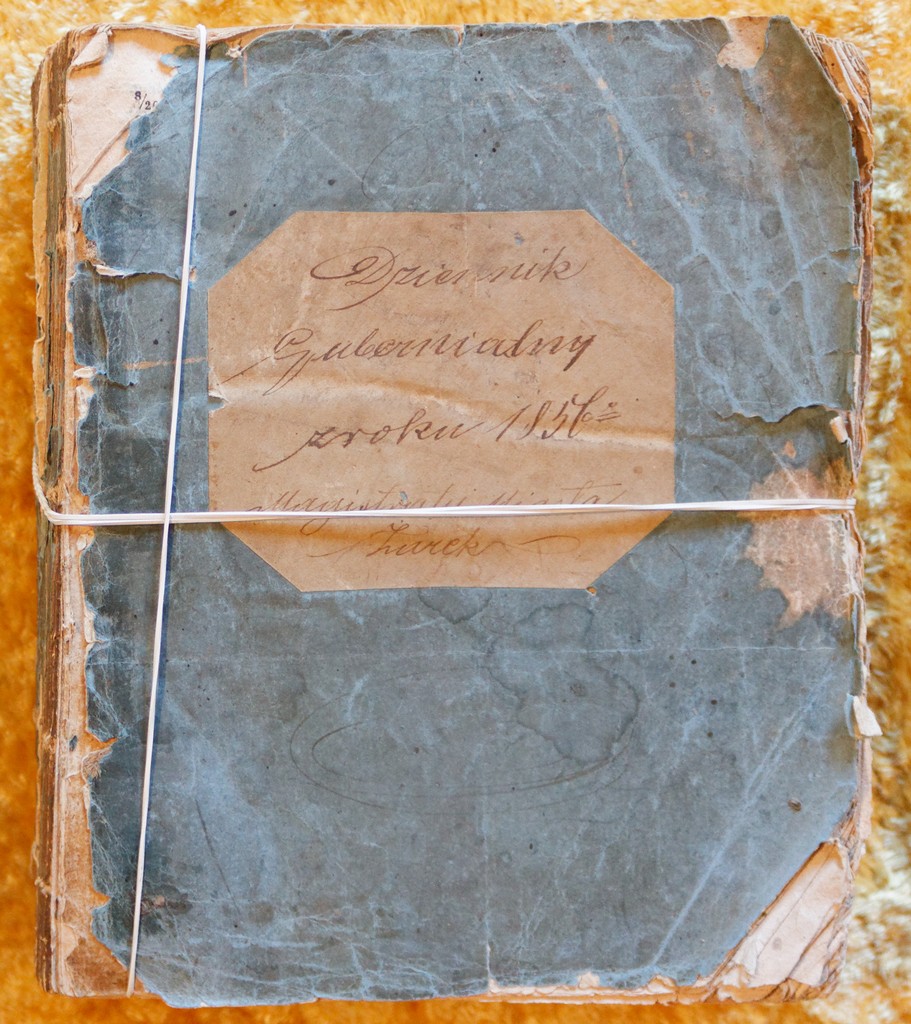 8/20
Dziennik
Gubernialny
z roku 1856go
Magistratu Miasta
Żurek